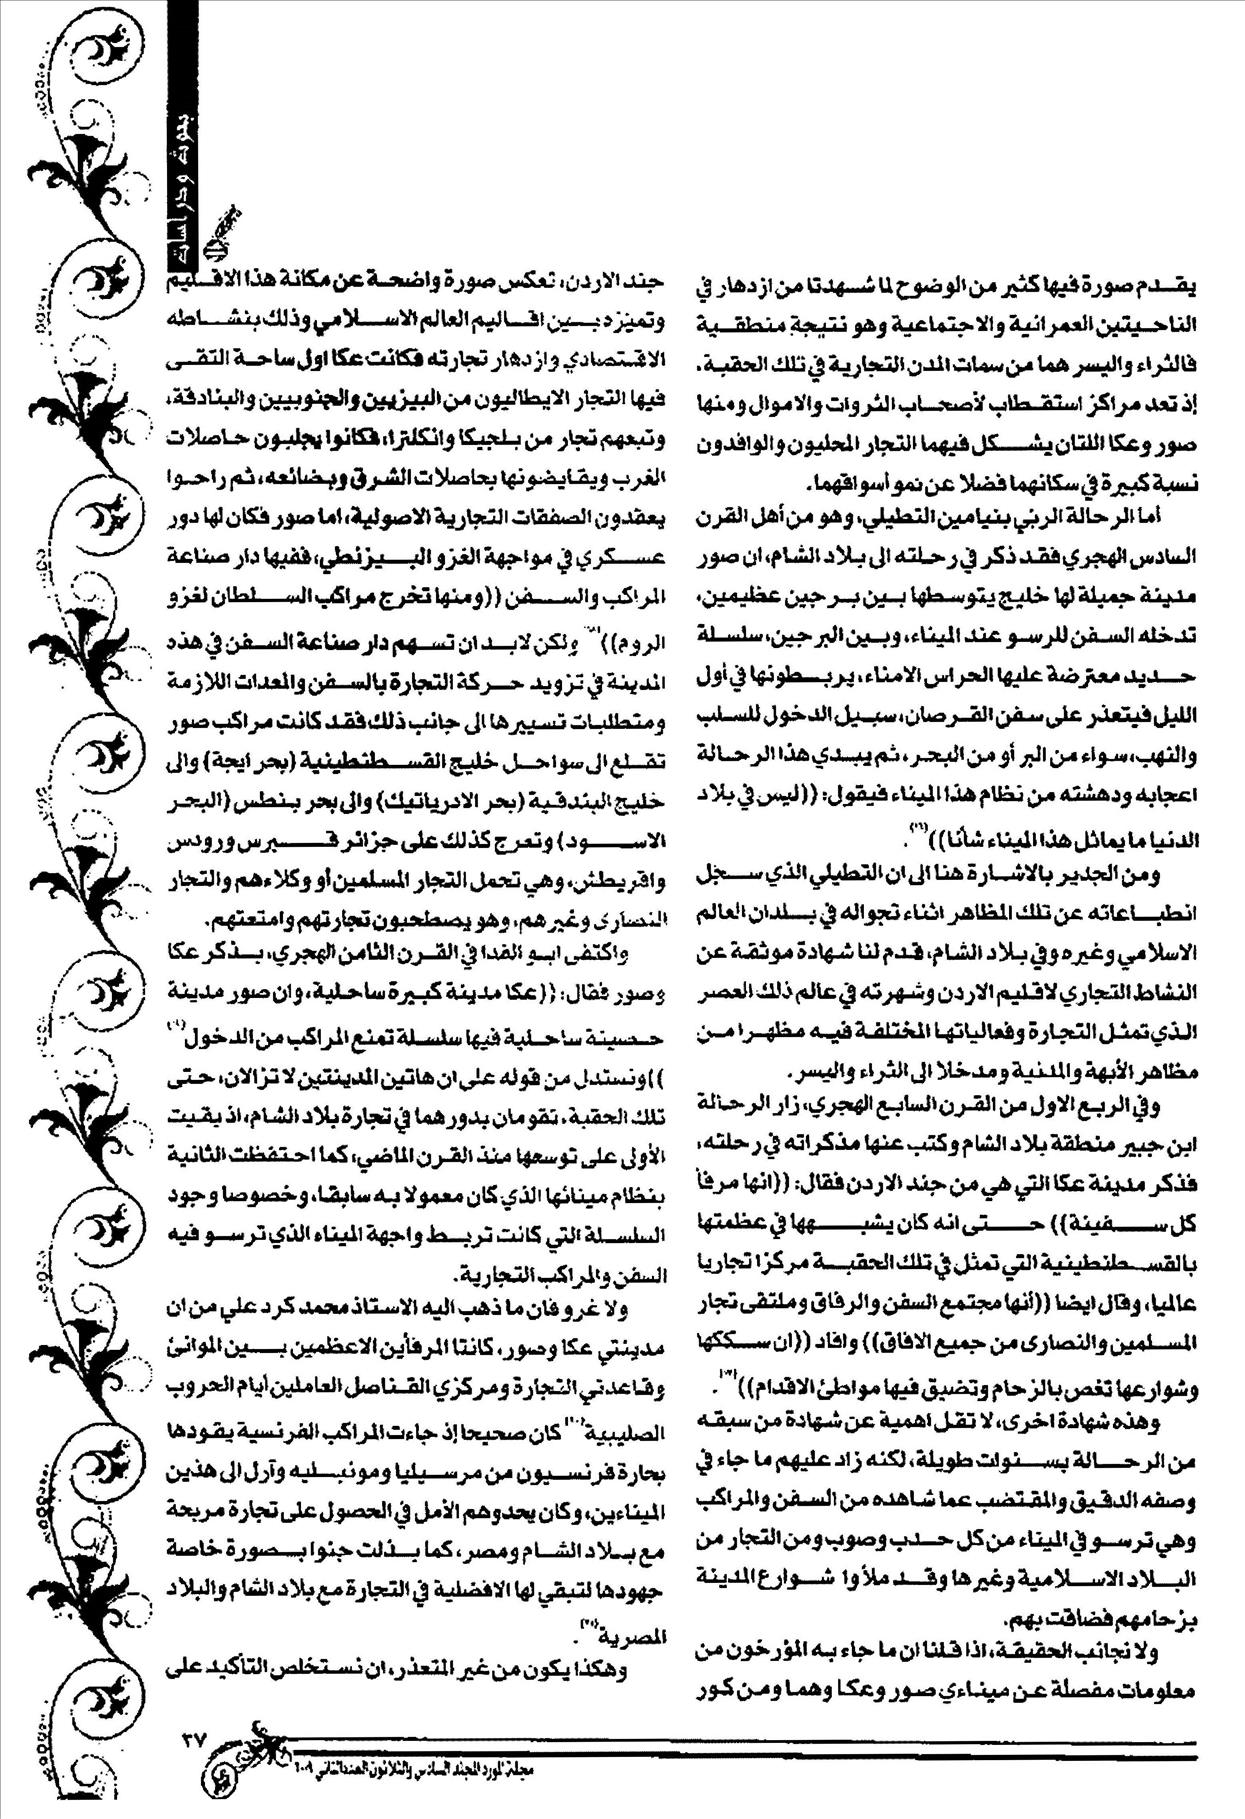 بحوث ودراسات
يقدم صورة فيها كثير من الوضوح لما شهدتا من ازدهار في
الناحيتين العمرانية والاجتماعية وهو نتيجة منطقية
فالثراء واليسر هما من سمات المدن التجارية في تلك الحقبة،
إذ تعد مراكز استقطاب لأصحاب الثروات والاموال ومنها
صور وعكا اللتان يشكل فيهما التجار المحليون والوافدون
نسبة كبيرة في سكانهما فضلا عن نمو أسواقهما.
أما الرحالة الربي بنيامين التطيلي، وهو من أهل القرن
السادس الهجري فقد ذكر في رحلته الى بلاد الشام، ان صور
مدينة جميلة لها خليج يتوسطها بين برجين عظيمين،
تدخله السفن للرسو عند الميناء، وبين البرجين، سلسلة
حديد معترضة عليها الحراس الامناء، يربطونها في أول
الليل فيتعذر على سفن القرصان، سبيل الدخول للسلب
والنهب، سواء من البر أو من البحر، ثم يبدي هذا الرحالة
اعجابه ودهشته من نظام هذا الميناء فيقول: ((ليس في بلاد
الدنيا ما يماثل هذا الميناء شأنا))(٢٦).
ومن الجدير بالاشارة هنا الى ان التطيلي الذي سجل
انطباعاته عن تلك المظاهر اثناء تجواله في بلدان العالم
الاسلامي وغيره وفي بلاد الشام، قدم لنا شهادة موثقة عن
النشاط التجاري لاقليم الاردن وشهرته في عالم ذلك العصر
الذي تمثل التجارة وفعالياتها المختلفة فيه مظهرا من
مظاهر الأبهة والمدنية ومدخلا الى الثراء واليسر.
وفي الربع الاول من القرن السابع الهجري، زار الرحالة
ابن جبير منطقة بلاد الشام وكتب عنها مذكراته في رحلته،
فذكر مدينة عكا التي هي من جند الاردن فقال: ((انها مرفأ
كل سفينة)) حتى انه كان يشبهها في عظمتها
بالقسطنطينية التي تمثل في تلك الحقبة مركزا تجاريا
عالميا، وقال ايضا ((أنها مجتمع السفن والرفاق وملتقى تجار
المسلمين والنصارى من جميع الافاق)) وافاد ((ان سككها
وشوارعها تغص بالزحام وتضيق فيها مواطئ الاقدام)).
وهذه شهادة اخرى، لا تقل اهمية عن شهادة من سبقه
من الرحالة بسنوات طويلة، لكنه زاد عليهم ما جاء في
وصفه الدقيق والمقتضب عما شاهده من السفن والمراكب
وهي ترسو في الميناء من كل حدب وصوب ومن التجار من
البلاد الاسلامية وغيرها وقد ملأوا شوارع المدينة
بزحامهم فضاقت بهم.
ولا نجانب الحقيقة، اذا قلنا ان ما جاء به المؤرخون من
معلومات مفصلة عن ميناءي صور وعكا وهما ومن كور
جند الاردن، تعكس صورة واضحة عن مكانة هذا الاقليم
وتميزه بين اقاليم العالم الاسلامي وذلك بنشاطه
الاقتصادي وازدهار تجارته فكانت عكا اول ساحة التقى
فيها التجار الايطاليون من البيزيين والجنوبيين والبنادقة،
وتبعهم تجار من بلجيكا وانكلترا، فكانوا يجلبون حاصلات
الغرب ويقايضونها بحاصلات الشرق وبضائعه، ثم راحوا
يعقدون الصفقات التجارية الاصولية، اما صور فكان لها دور
عسكري في مواجهة الغزو البيزنطي، ففيها دار صناعة
المراكب والسفن ((ومنها تخرج مراكب السلطان لغزو
الروم)) ولكن لابد ان تسهم دار صناعة السفن في هذه
المدينة في تزويد حركة التجارة بالسفن والمعدات اللازمة
ومتطلبات تسييرها الى جانب ذلك فقد كانت مراكب صور
تقلع الى سواحل خليج القسطنطينية (بحر ايجة) والى
خليج البندقية (بحر الادرياتيك) والى بحر بنطس (البحر
الاسود) وتعرج كذلك على جزائر قبرس ورودس
واقريطش، وهي تحمل التجار المسلمين أو وكلاءهم والتجار
النصارى وغيرهم، وهو يصطحبون تجارتهم وامتعتهم.
واكتفى ابو الفدا في القرن الثامن الهجري، بذكر عكا
وصور فقال: ((عكا مدينة كبيرة ساحلية، وان صور مدينة
حصينة ساحلية فيها سلسلة تمنع المراكب من الدخول
))ونستدل من قوله على ان هاتين المدينتين لا تزالان، حتى
تلك الحقبة، تقومان بدورهما في تجارة بلاد الشام، اذ بقيت
الأولى على توسعها منذ القرن الماضي، كما احتفظت الثانية
بنظام مينائها الذي كان معمولا به سابقا، وخصوصا وجود
السلسلة التي كانت تربط واجهة الميناء الذي ترسو فيه
السفن والمراكب التجارية.
ولا غرو فان ما ذهب اليه الاستاذ محمد كرد علي من ان
مدينتي عكا وصور، كانتا المرفأين الاعظمين بين الموانئ
وقاعدتي التجارة ومركزي القناصل العاملين أيام الحروب
الصليبية كان صحيحا إذ جاءت المراكب الفرنسية يقودها
بحارة فرنسيون من مرسيليا ومونبليه وآرل الى هذين
الميناءين، وكان يحدوهم الأمل في الحصول على تجارة مربحة
مع بلاد الشام ومصر، كما بذلت جنوا بصورة خاصة
جهودها لتبقي لها الافضلية في التجارة مع بلاد الشام والبلاد
المصرية.
وهكذا يكون من غير المتعذر، ان نستخلص التأكيد على
٣٧
مجلة المورد المجلد السادس والثلاثون العدد الثاني ٢٠٠٩